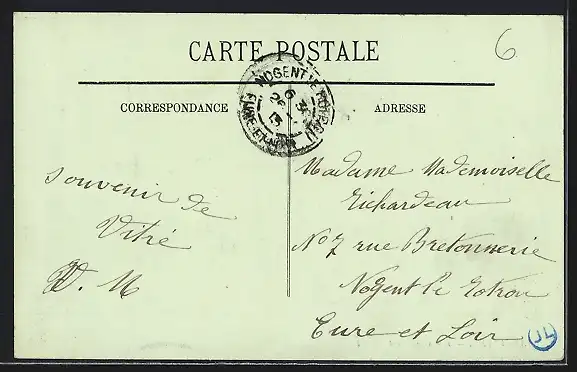 6
CARTE POSTALE
NOGENT LE ROTROU
6
26
13
EURE-ET-LOIR
CORRESPONDANCE
ADRESSE
Souvenir de
Vitré
Madame Mademoiselle
Richardeau
No 7 rue Bretonnerie
Nogent le Rotrou
Eure et Loir
JL